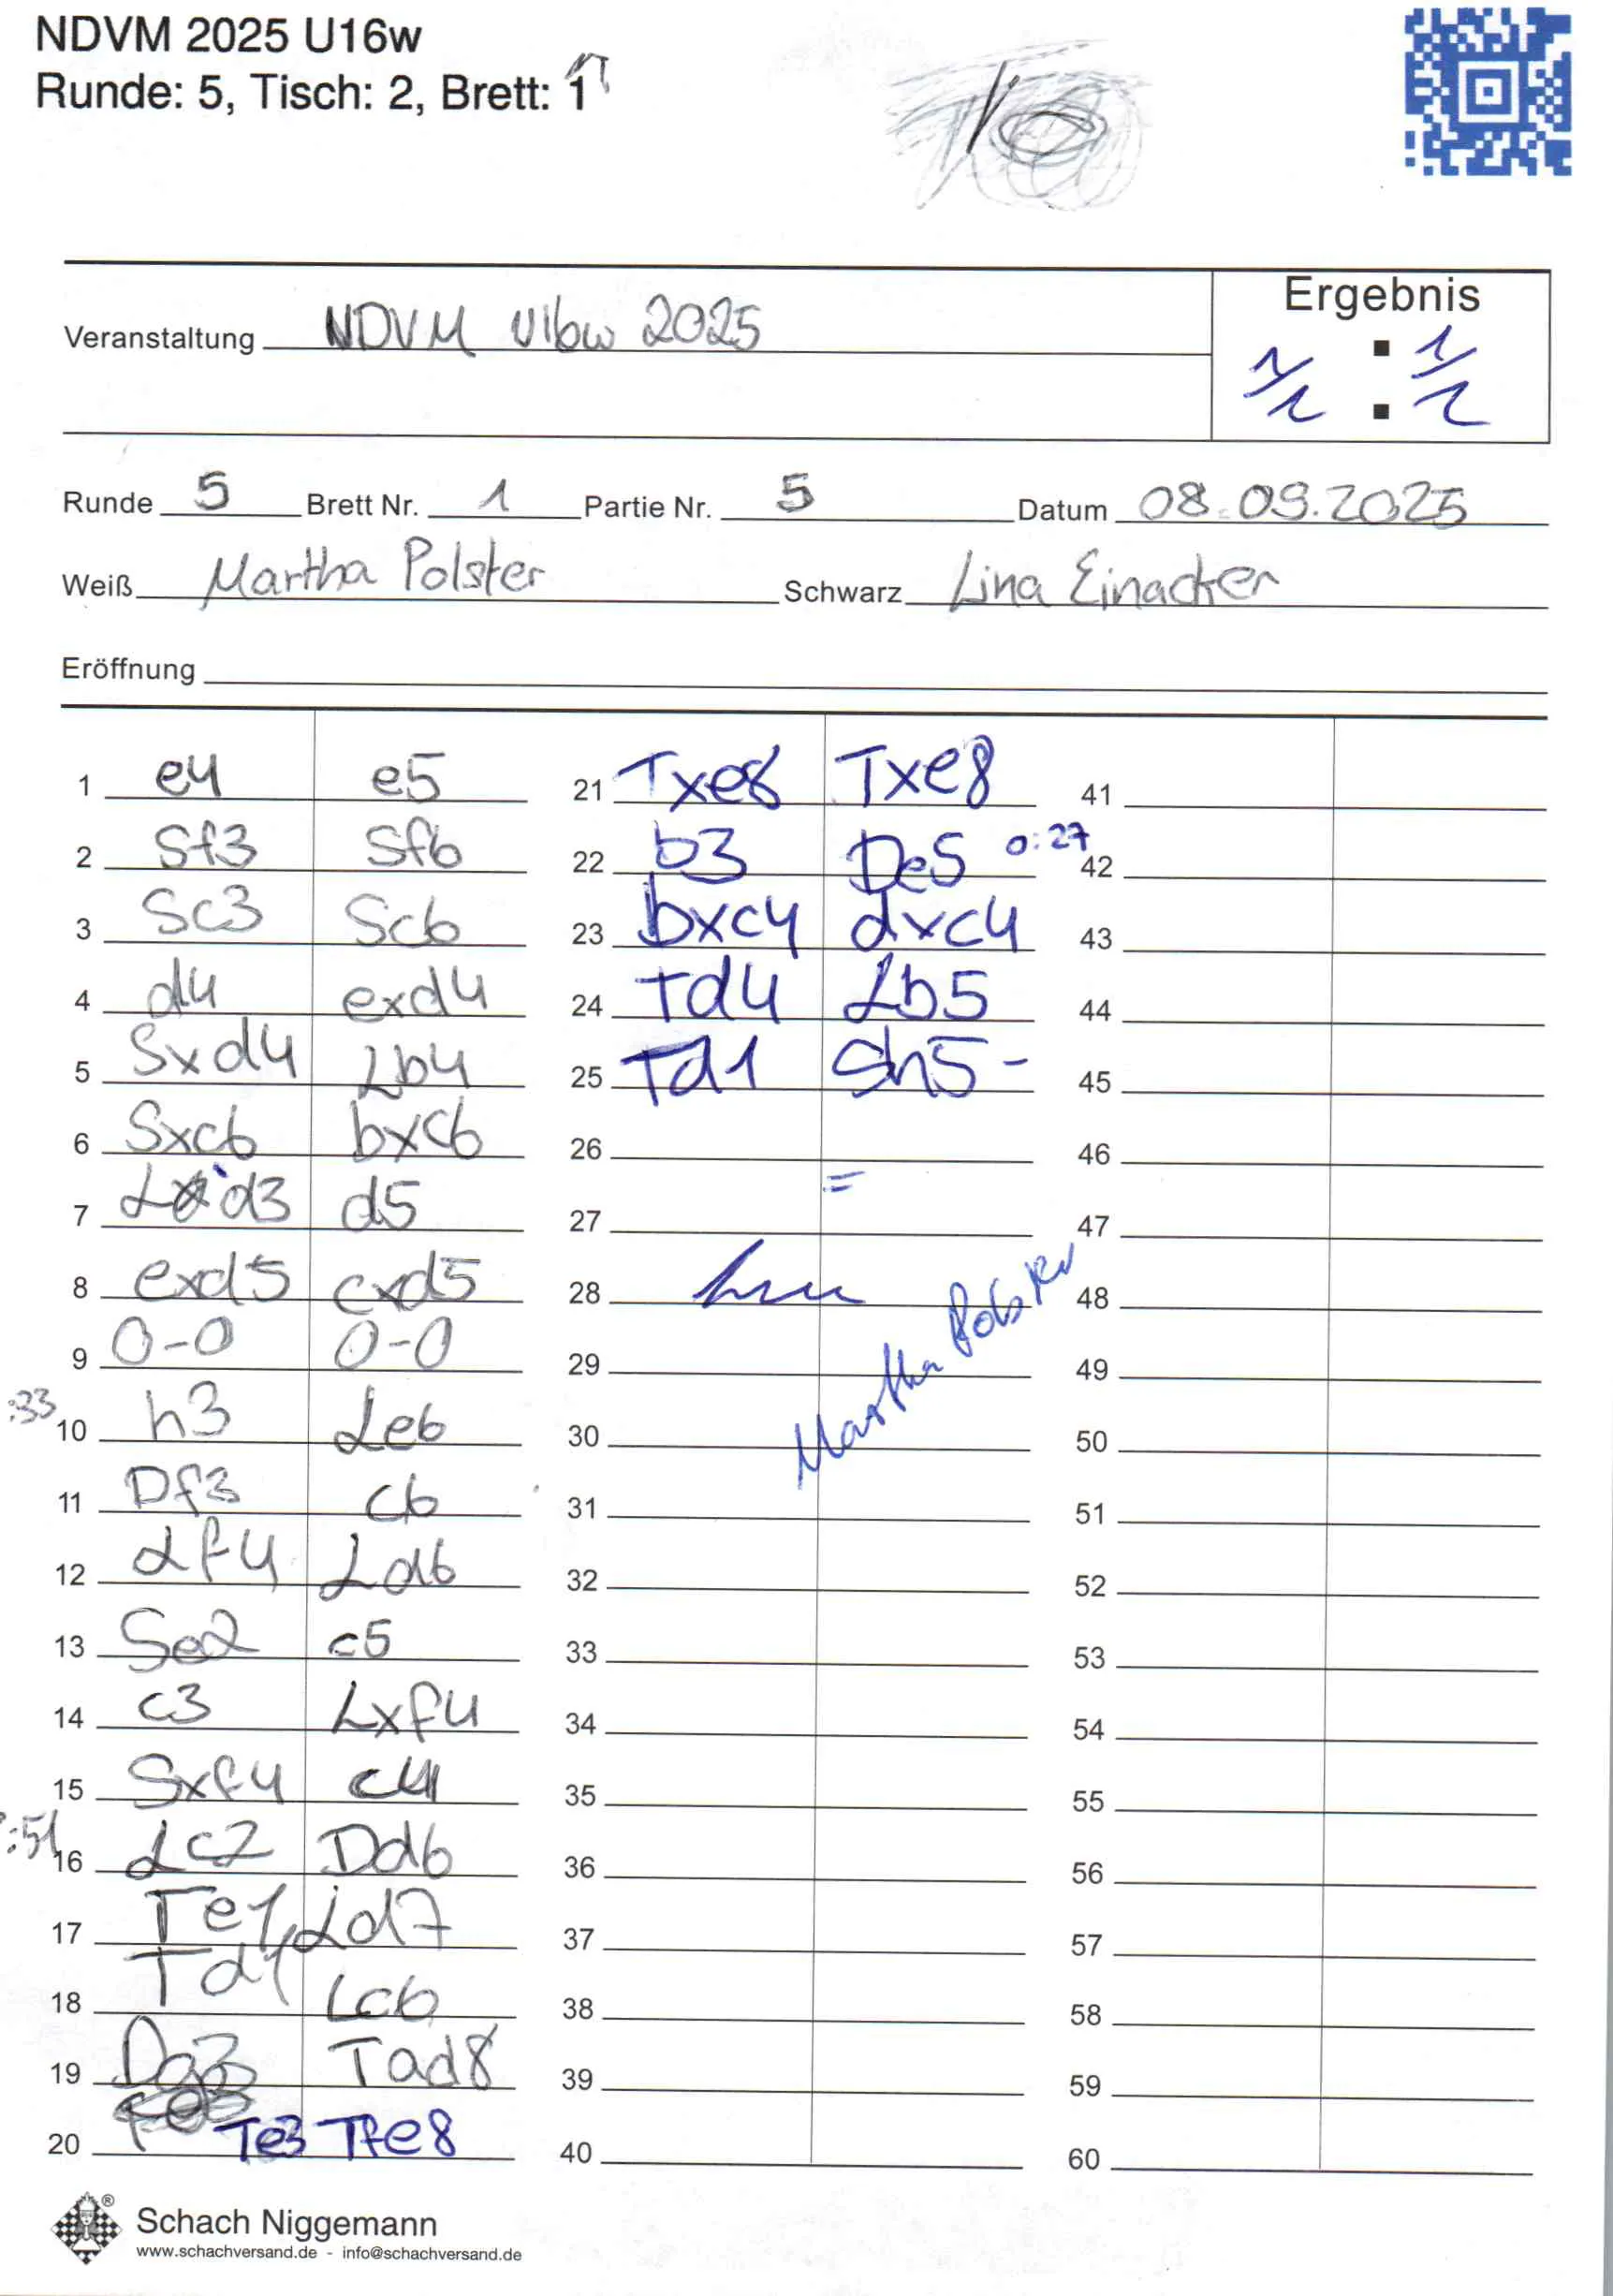 NDVM 2025 U16w
Runde: 5, Tisch: 2, Brett: 1
Ergebnis
Veranstaltung NDVM U16w 2025
1/2 : 1/2
Runde 5 Brett Nr. 1 Partie Nr. 5 Datum 08.09.2025
Weiß Martha Polster Schwarz Lina Einacker
Eröffnung
1 e4 e5
2 Sf3 Sf6
3 Sc3 Sc6
4 d4 exd4
5 Sxd4 Lb4
6 Sxc6 bxc6
7 Ld3 d5
8 exd5 cxd5
9 0-0 0-0
:33
10 h3 Le6
11 Df3 c6
12 Lf4 Ld6
13 Se2 c5
14 c3 Lxf4
15 Sxf4 c4
:51
16 Lc2 Dd6
17 Te1 Ld7
18 Td1 Lc6
19 Dg3 Tad8
20 Te3 Tfe8
21 Txe8 Txe8
22 b3 De5 0:27
23 bxc4 dxc4
24 Td4 Lb5
25 Td1 Sh5 -
26
=
27
28
Martha Polster
29
30
31
32
33
34
35
36
37
38
39
40
41
42
43
44
45
46
47
48
49
50
51
52
53
54
55
56
57
58
59
60
®
Schach Niggemann
www.schachversand.de - info@schachversand.de